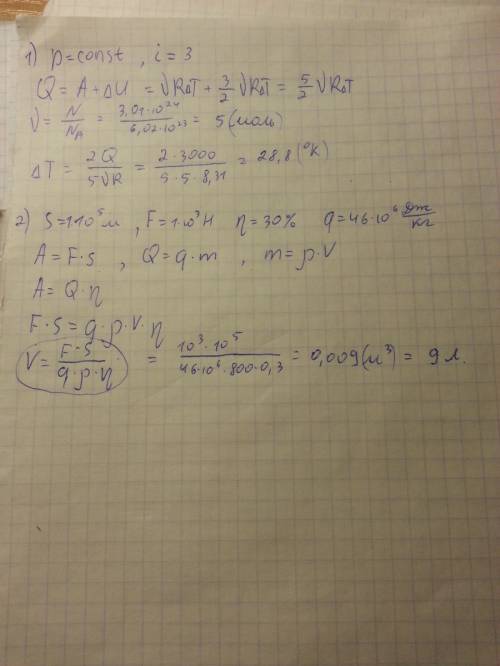 1) p=const, i=3
Q = A+ΔU = νRΔT + 3/2 νRΔT = 5/2 νRΔT
ν = N/N_A = 3,01·10²⁴/6,02·10²³ = 5 (моль)
ΔT = 2Q/5νR = 2·3000/5·5·8,31 = 28,8 (°K)
2) S=1·10⁵м, F=1·10³Н η=30% q=46·10⁶ Дж/кг
A=F·s, Q=q·m, m=ρ·V
A=Q·η
F·S=q·ρ·V·η
V= F·S/q·ρ·η = 10³·10⁵/46·10⁶·800·0,3 = 0,009(м³) = 9 л.